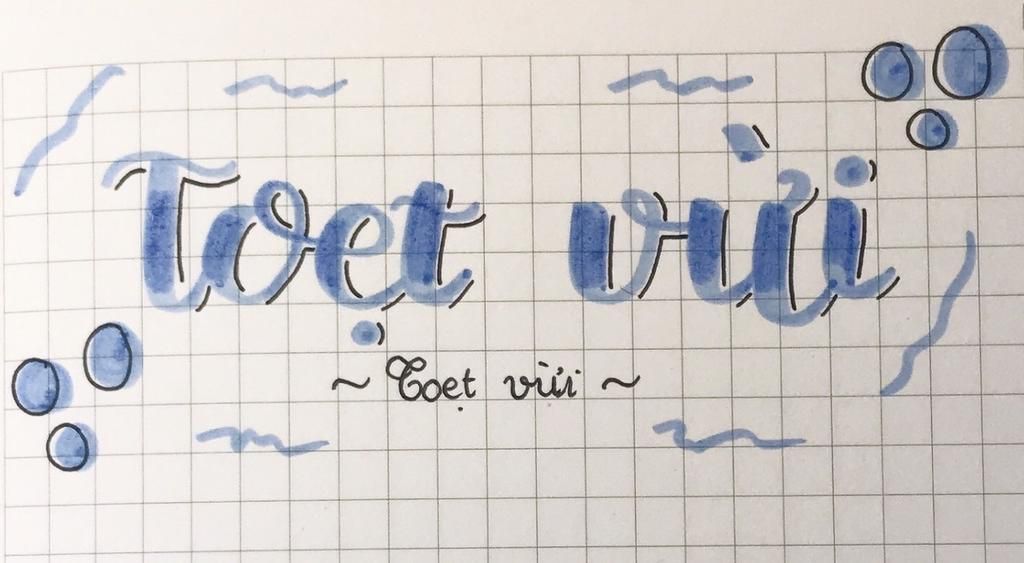 Toẹt vừi
~ Toẹt vừi ~